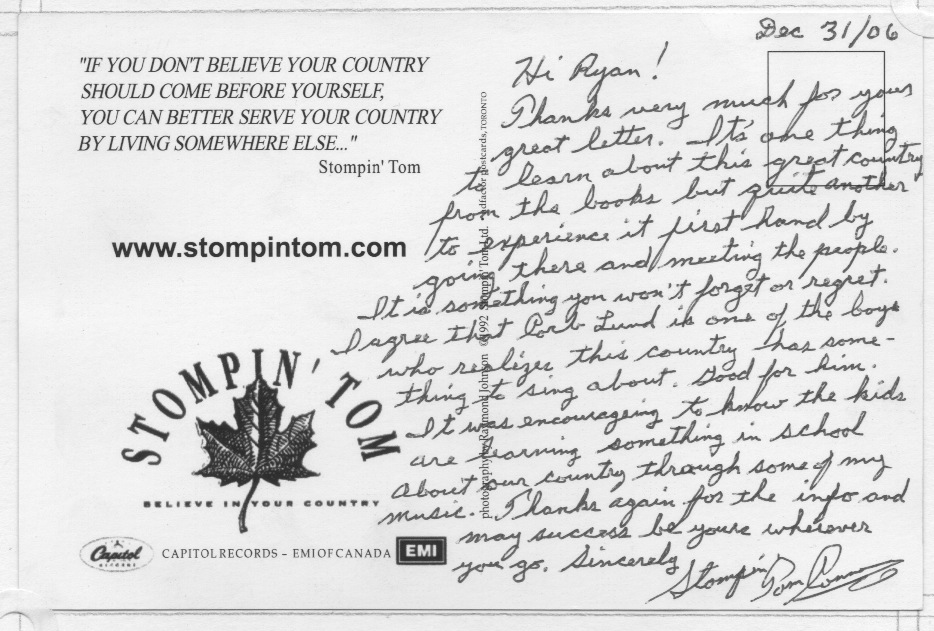 "IF YOU DON'T BELIEVE YOUR COUNTRY
SHOULD COME BEFORE YOURSELF,
YOU CAN BETTER SERVE YOUR COUNTRY
BY LIVING SOMEWHERE ELSE..."
Stompin' Tom
www.stompintom.com
STOMPIN' TOM
BELIEVE IN YOUR COUNTRY
Capitol
RECORDS
CAPITOL RECORDS – EMI OF CANADA
EMI
photography by Raymond Johnson ©1992 Stompin' Tom Ltd. postcards, TORONTO
Dec 31/06
Hi Ryan!
Thanks very much for your
great letter. It's one thing
to learn about this great country
from the books but quite another
to experience it first hand by
going there and meeting the people.
It is something you won't forget or regret.
I agree that Corb Lund is one of the boys
who realizes this country has some-
thing to sing about. Good for him.
It was encourageing to know the kids
are learning something in school
about our country through some of my
music. Thanks again for the info and
may success be yours wherever
you go. Sincerely
Stompin' Tom Connors